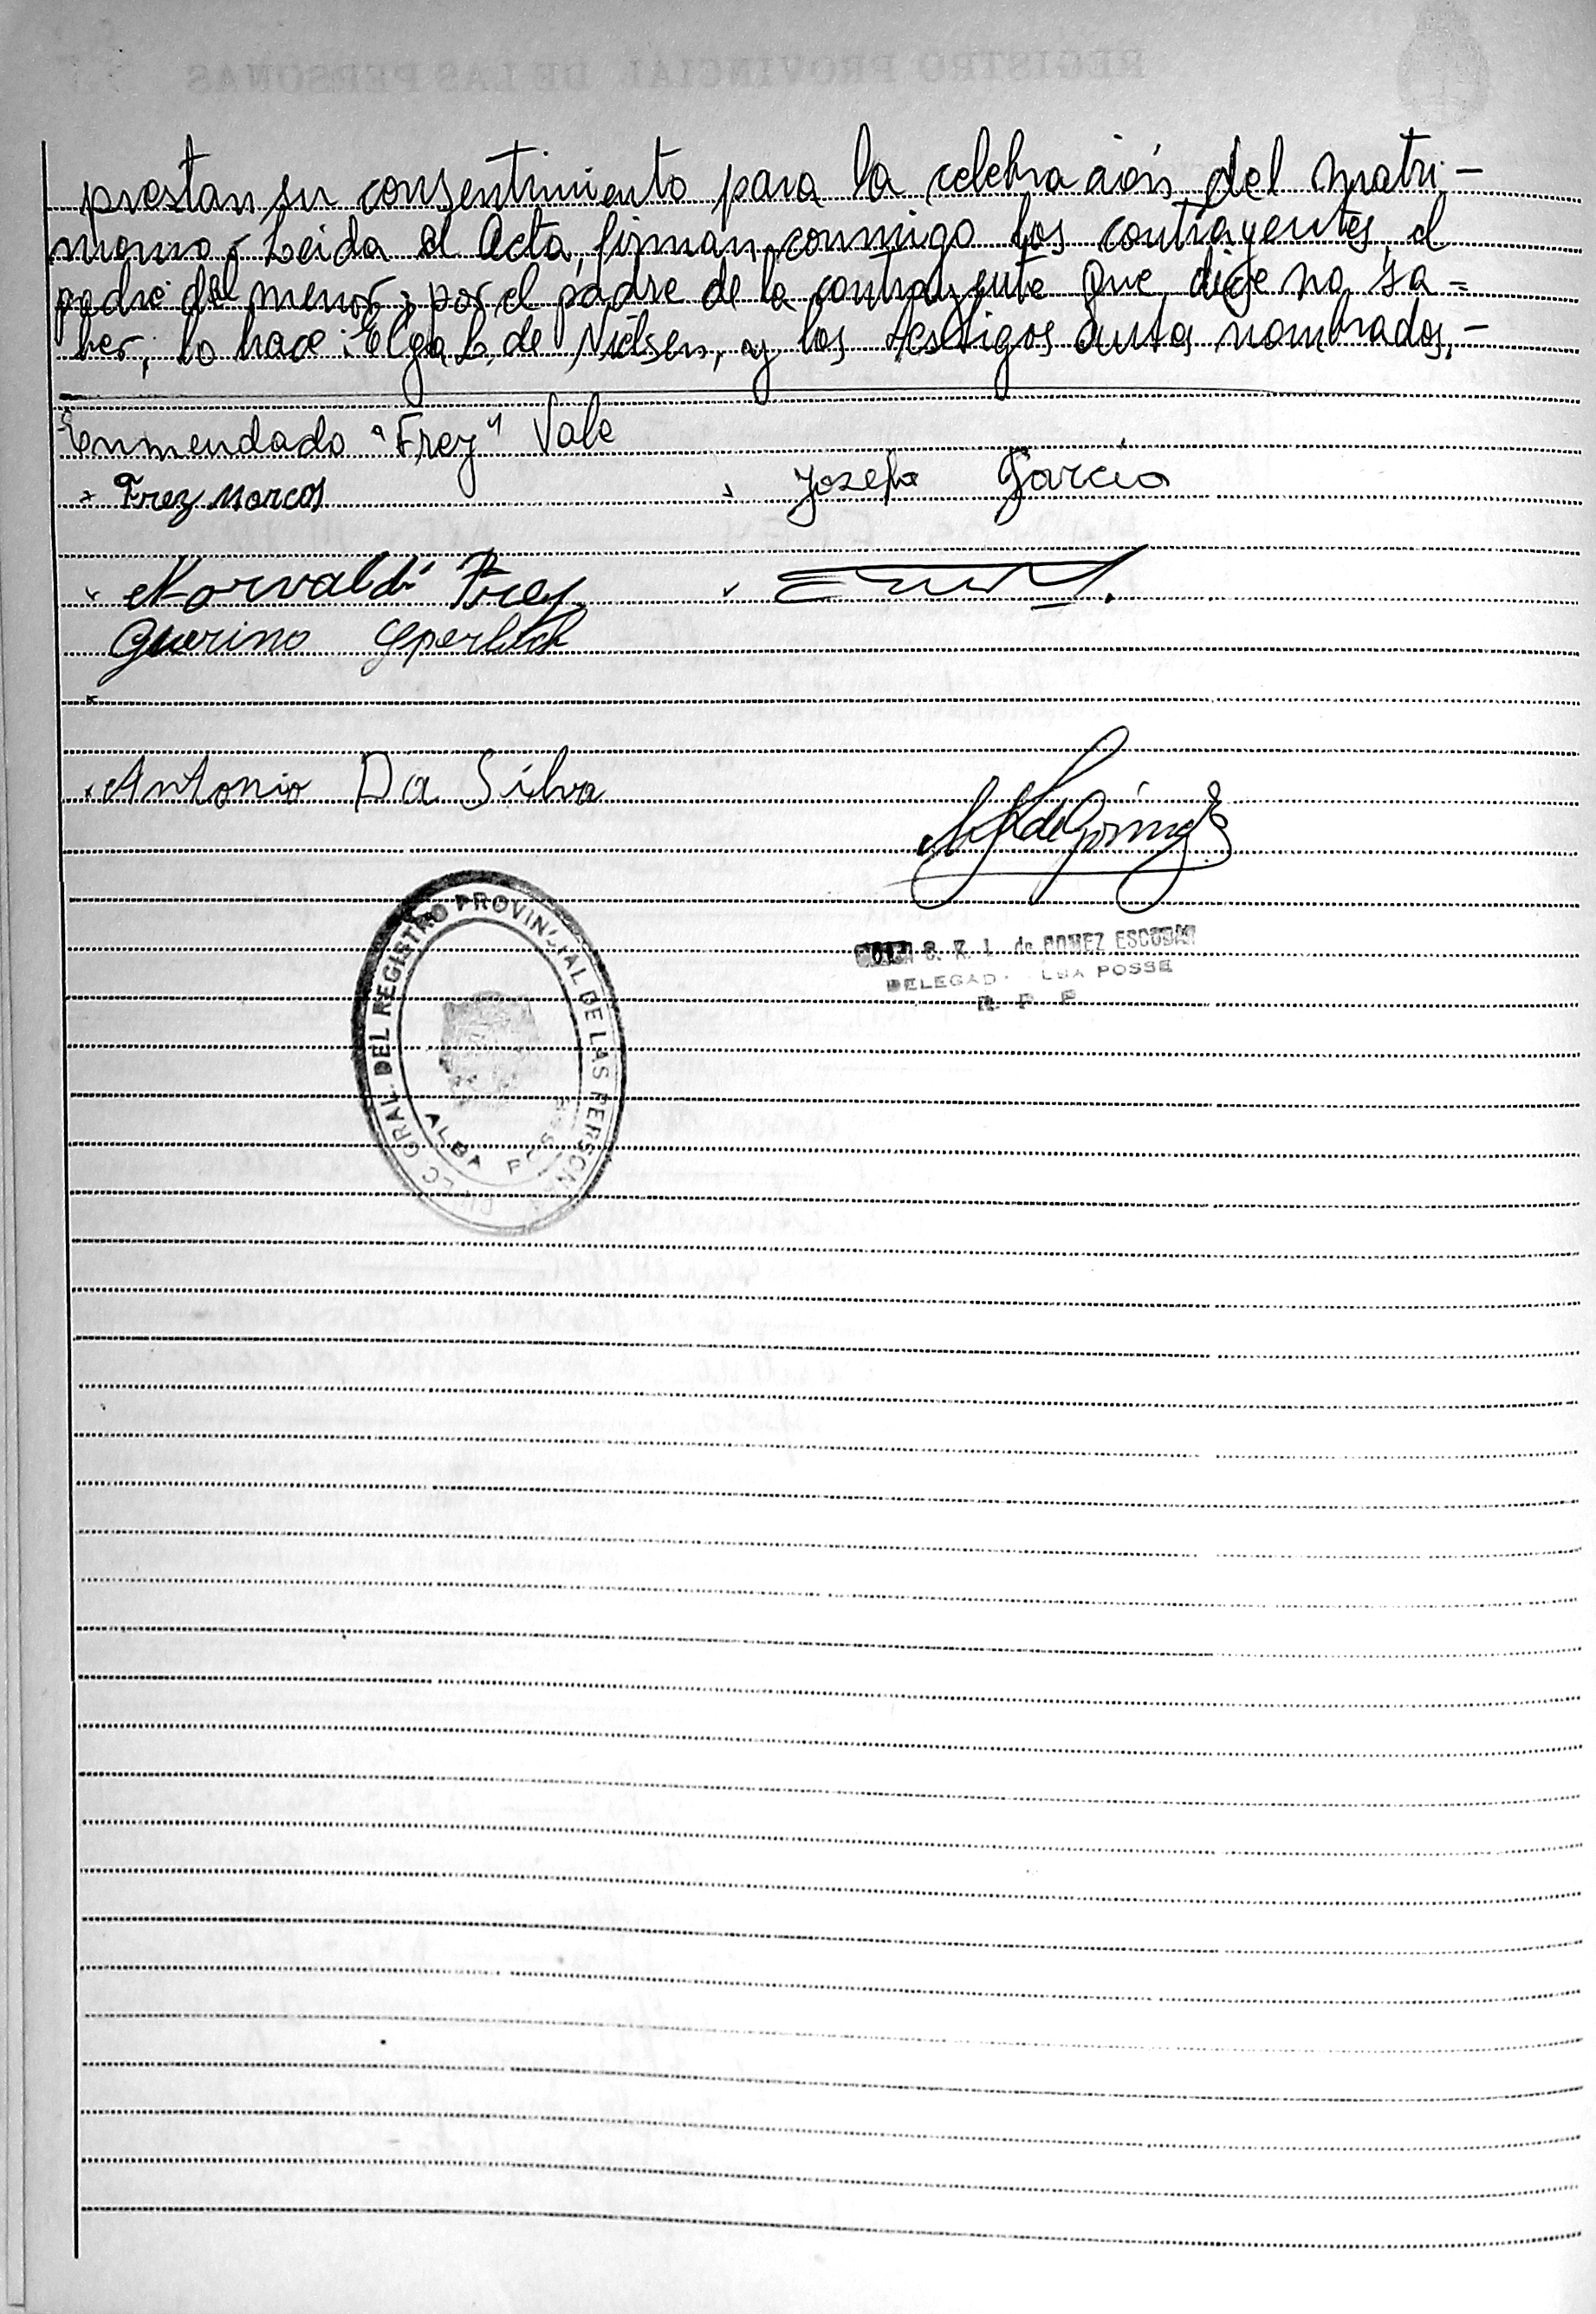 prestan su consentimiento para la celebración del matri-
monio. Leida el Acta, firman conmigo los contrayentes, el
padre del menor; por el padre de la contrayente que dice no sa=
ber, lo hace: Elga L. de Nielsen, y los testigos antes nombrados.-
Enmendado "Frey" Vale
Frey Marcos Josefa Garcia
Norvaldi Frey
Guerino Sperlich
Antonio Da Silva
S. R. L. de GOMEZ ESCOBAR
DELEGAD LBA POSSE
R P P
DIREC GRAL. DEL REGISTRO PROVINCIAL DE LAS PERSONAS
ALBA POSSE
REGISTRO PROVINCIAL DE LAS PERSONAS